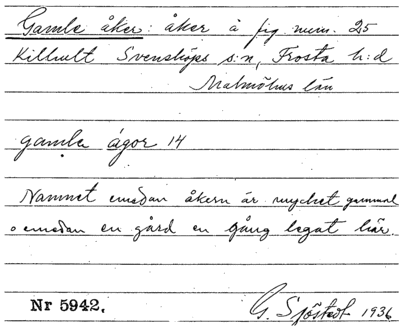 Gamle åker: åker å fig num. 25
Killhult Svensköps s:n, Frosta h:d
Malmöhus län
gamla ágor 14
Namnet emedan åkern är mycket gammal
o emedan en gård en gång legat här.
Nr 5942.
G. Sjöstedt 1936